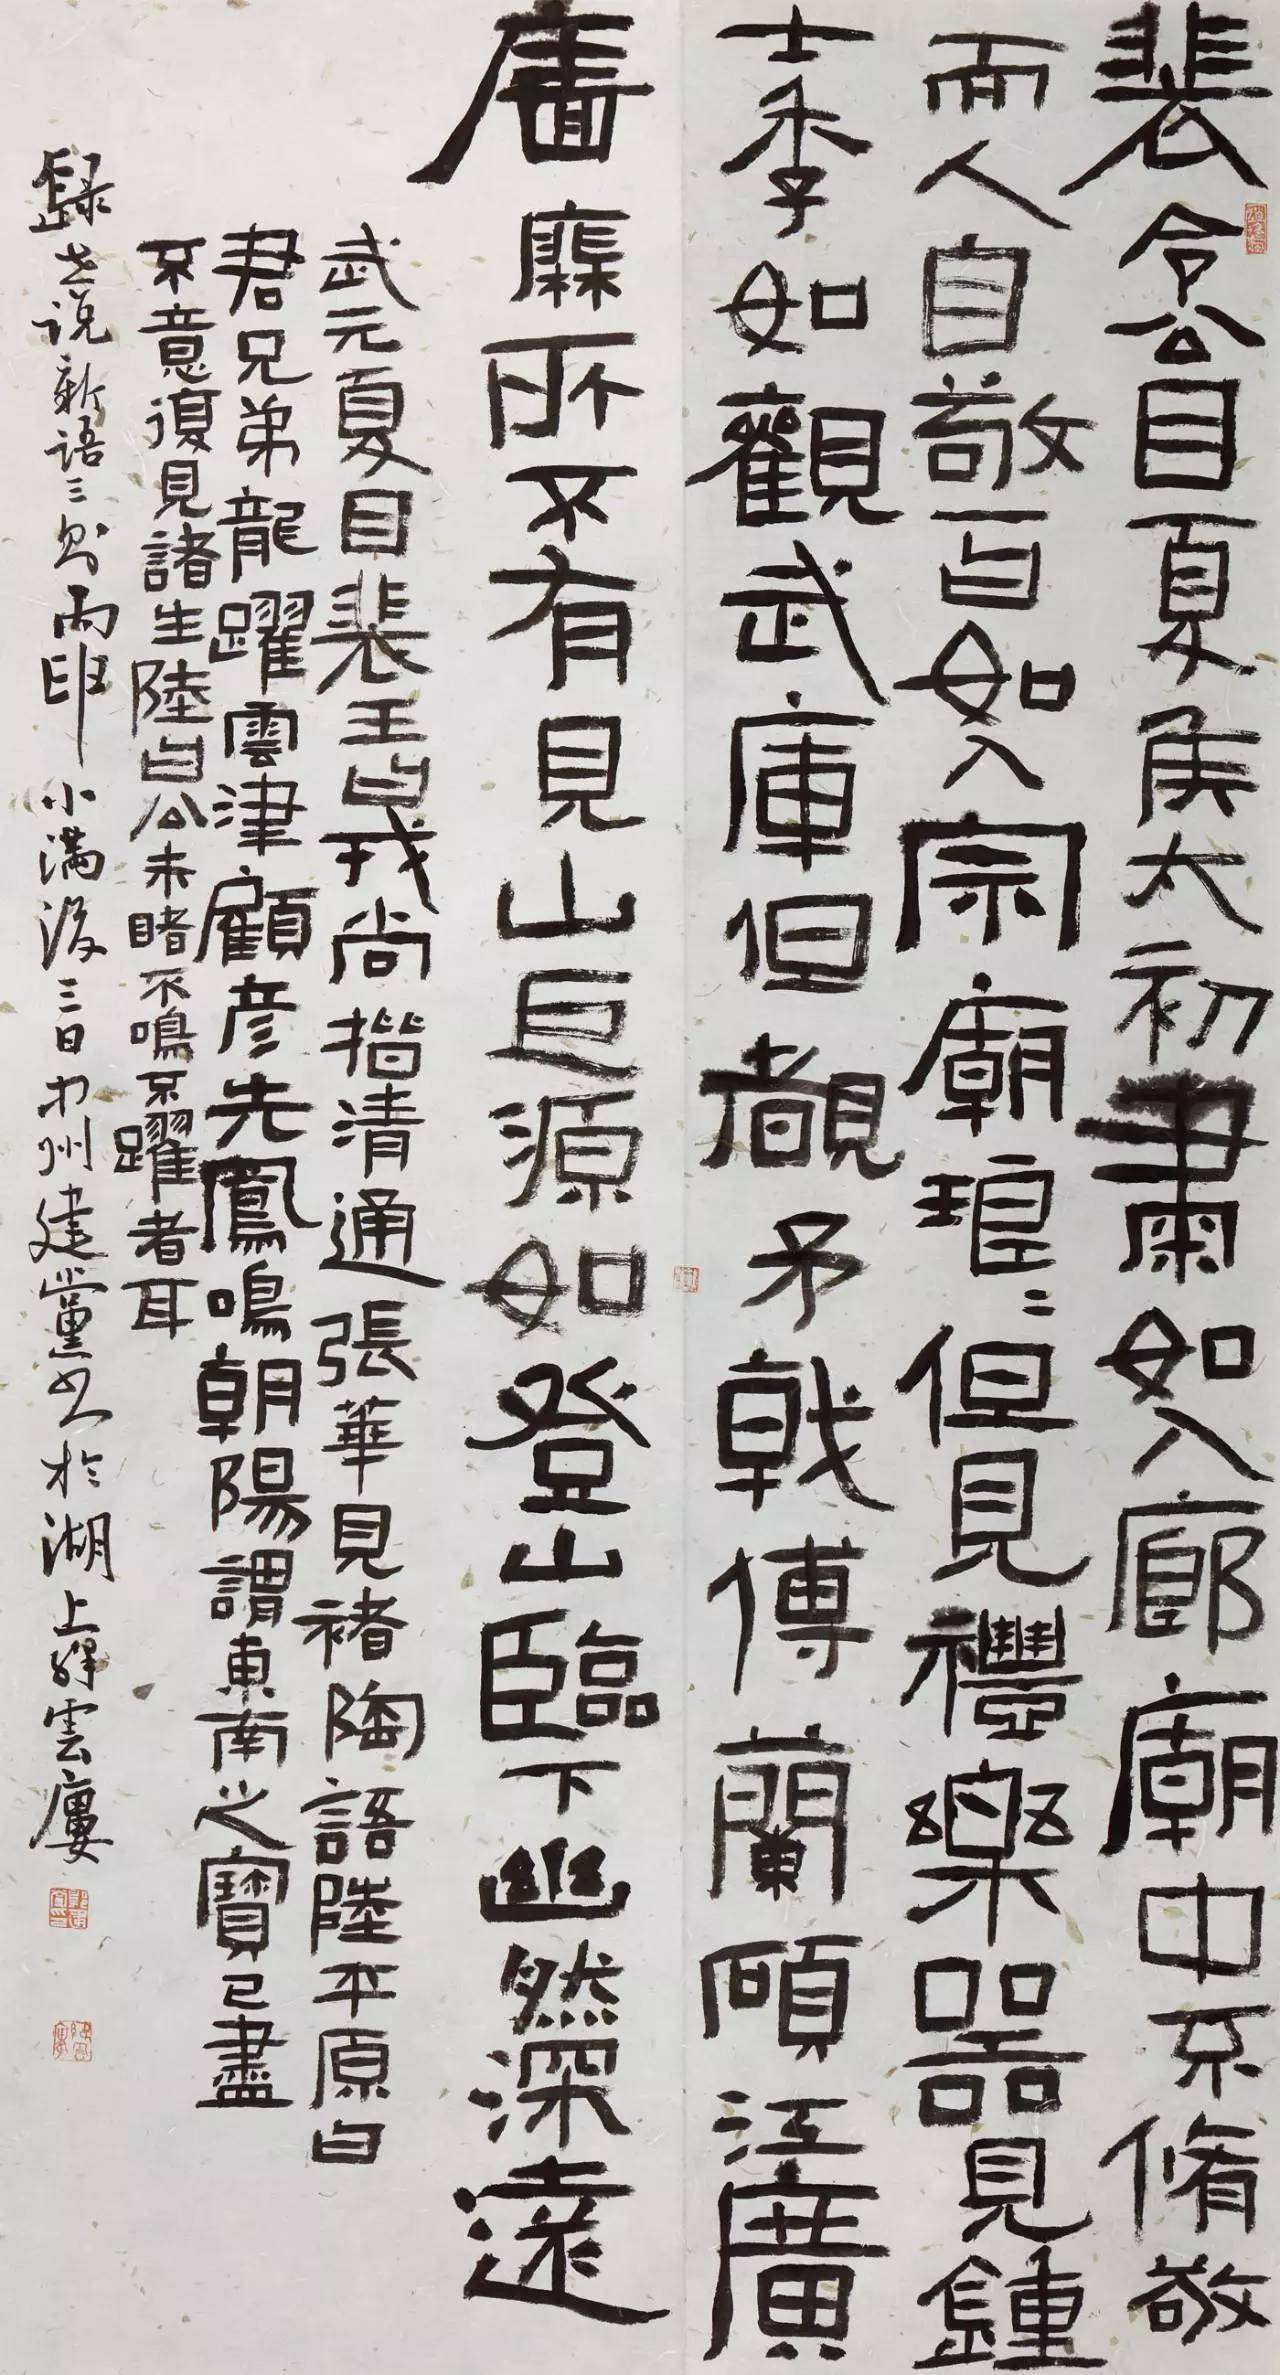 裴令公目夏侯太初肅如入廊廟中不脩敬
而人自敬一曰如入宗廟琅〻但見禮樂器見鍾
士季如觀武庫但覩矛戟傅蘭碩江廣
廧靡所不有見山巨源如登山臨下幽然深遠
武元夏目裴王曰戎尚楷清通張華見褚陶語陸平原曰
君兄弟龍躍雲津顧彦先鳳鳴朝陽謂東南之寶已盡
不意復見諸生陸曰公未睹不鳴不躍者耳
錄世说新语三则丙申小满後三日州建黨书於湖上雲廔